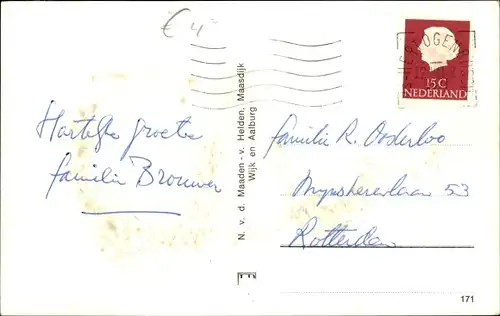 € 4
Hartelijke groeten
familie Brouwer
N. v. d. Maaden - v. Helden, Maasdijk
Wijk en Aalburg
HERTOGENB
15C
NEDERLAND
familie R. Oosterloo
53
Rotterdam
171